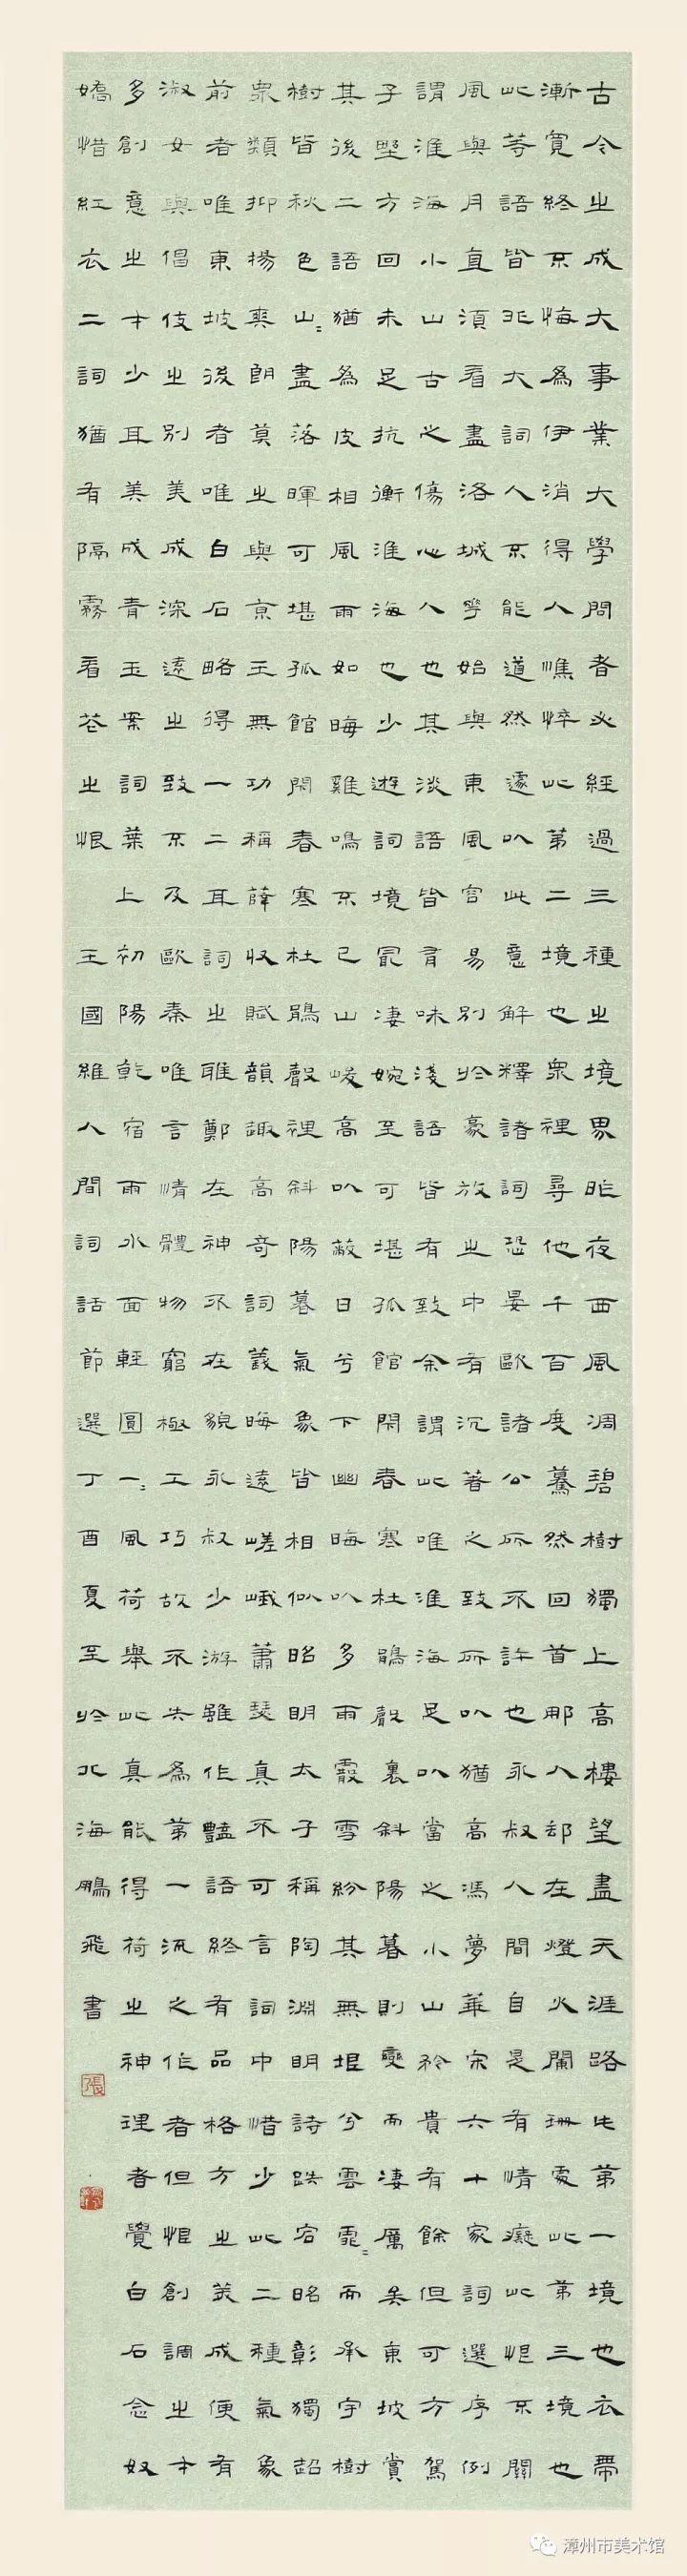 古今之成大事業大學問者必經過三種之境界昨夜西風凋碧樹獨上高樓望盡天涯路此第一境也衣帶
漸寬終不悔為伊消得人憔悴此第二境也衆裡尋他千百度驀然回首那人却在燈火闌珊處此第三境也
此等語皆非大詞人不能道然遽以此意解釋諸詞恐晏歐諸公所不許也永叔人間自是有情癡此恨不關
風與月直須看盡洛城花始與東風容易別於豪放之中有沉著之致所以猶高馮夢華宋六十家詞選序例
謂淮海小山古之傷心人也其淡語皆有味淺語皆有致余謂此唯淮海足以當之小山矜貴有餘但可方駕
子野方回未足抗衡淮海也少遊詞境最淒婉至可堪孤館閉春寒杜鵑聲裏斜陽暮則變而淒厲矣東坡賞
其後二語猶為皮相風雨如晦雞鳴不已山峻高以蔽日兮下幽晦以多雨霰雪紛其無垠兮雲霏〻而承宇樹
樹皆秋色山〻盡落暉可堪孤館閉春寒杜鵑聲裡斜陽暮氣象皆相似昭明太子稱陶淵明詩跌宕昭彰獨超
衆類抑揚爽朗莫之與京王無功稱薛收賦韻趣高奇詞義晦遠嵯峨蕭瑟真不可言詞中惜少此二種氣象
前者唯東坡後者唯白石略得一二耳詞之雅鄭在神不在貌永叔少游雖作豔語終有品格方之美成便有
淑女與倡伎之別美成深遠之致不及歐秦唯言情體物窮極工巧故不失為第一流之作者但恨創調之才
多創意之才少耳美成青玉案詞葉上初陽乾宿雨水面輕圓一〻風荷舉此真能得荷之神理者覺白石念奴
嬌惜紅衣二詞猶有隔霧看花之恨 王國維人間詞話節選丁酉夏至於北海鵬飛書
張
漳州市美术馆